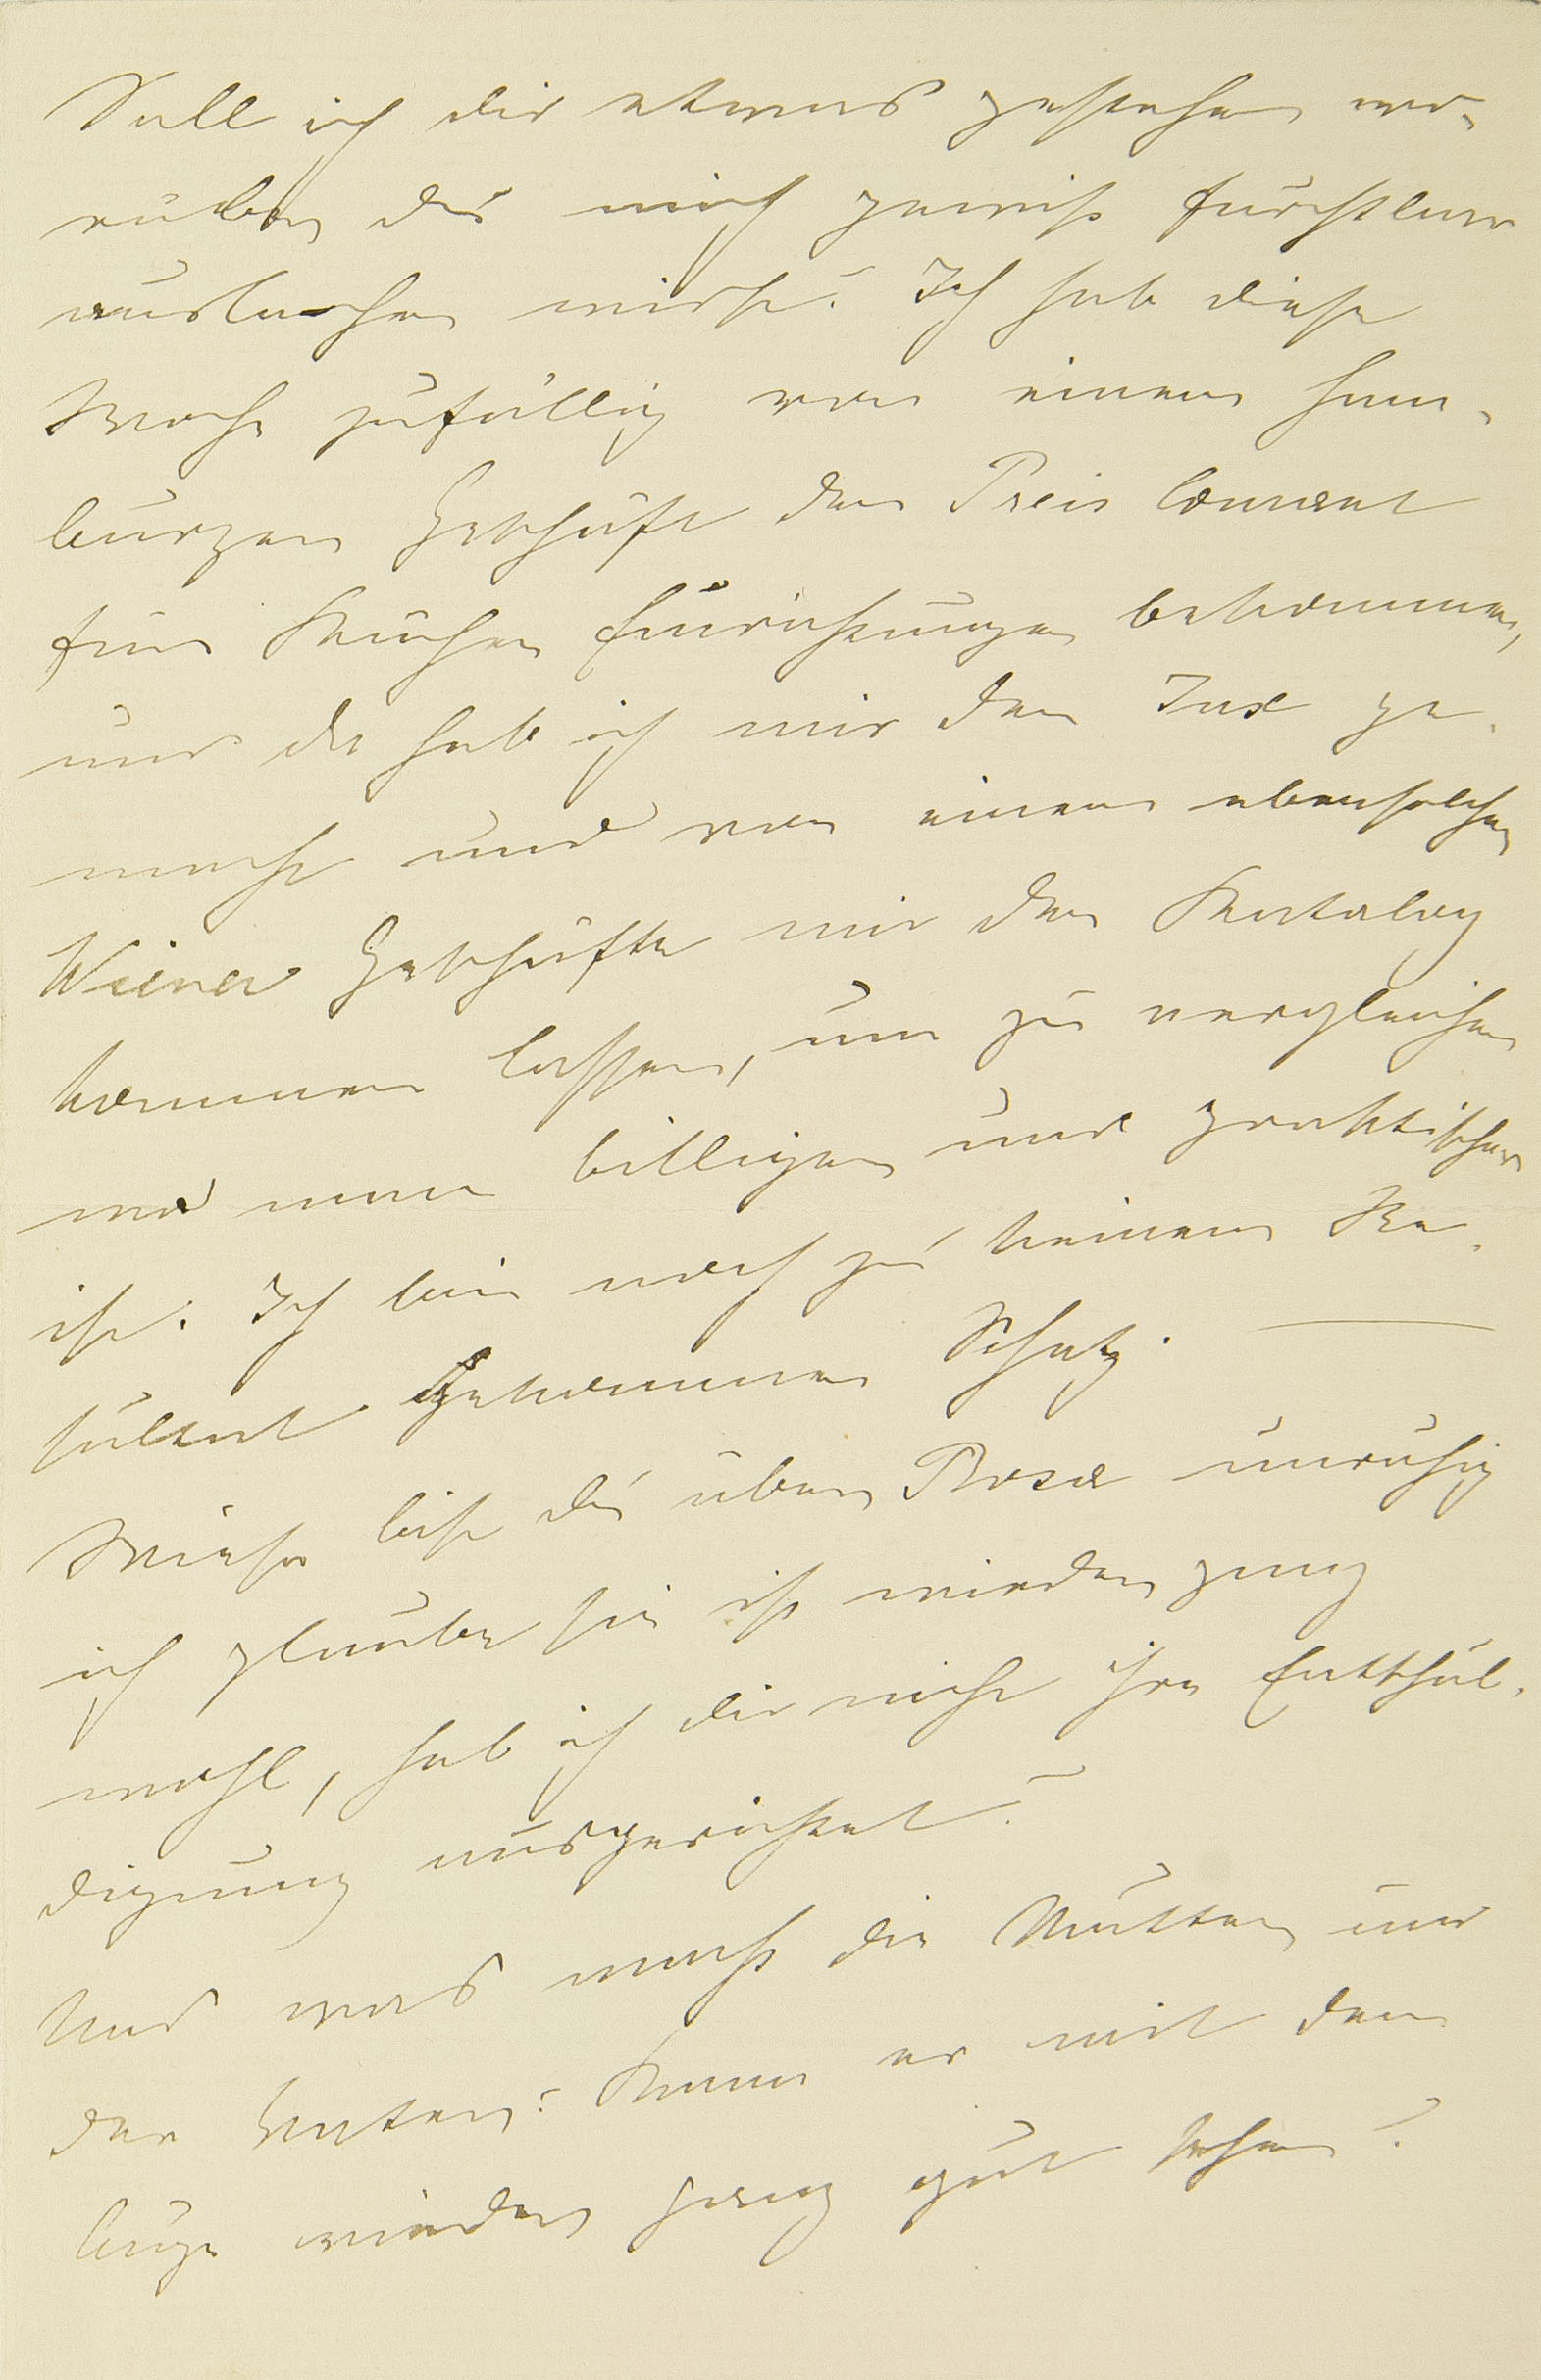 Soll ich dir etwas gestehen wo-
rüber du mich gewiß furchtbar
auslachen wirst? Ich hab diese
Woche zufällig von einem Ham-
burger Geschäft den Preis Courant
für Küchen Einrichtungen bekommen,
und da hab ich mir den Jux ge-
macht und von einem ebensolchen
Wiener Geschäfte mir den Katalog
kommen lassen, um zu vergleichen
wo man billiger und praktischer
ist. Ich bin noch zu keinem Re-
sultat gekommen Schatz. —
Wieso bist du über Rosa unruhig
ich glaube sie ist wieder ganz
wohl, hab ich dir nicht ihre Entschul-
digung ausgerichtet?
Und was macht die Mutter und
der Vater? Kann er mit dem
Auge wieder ganz gut sehen?